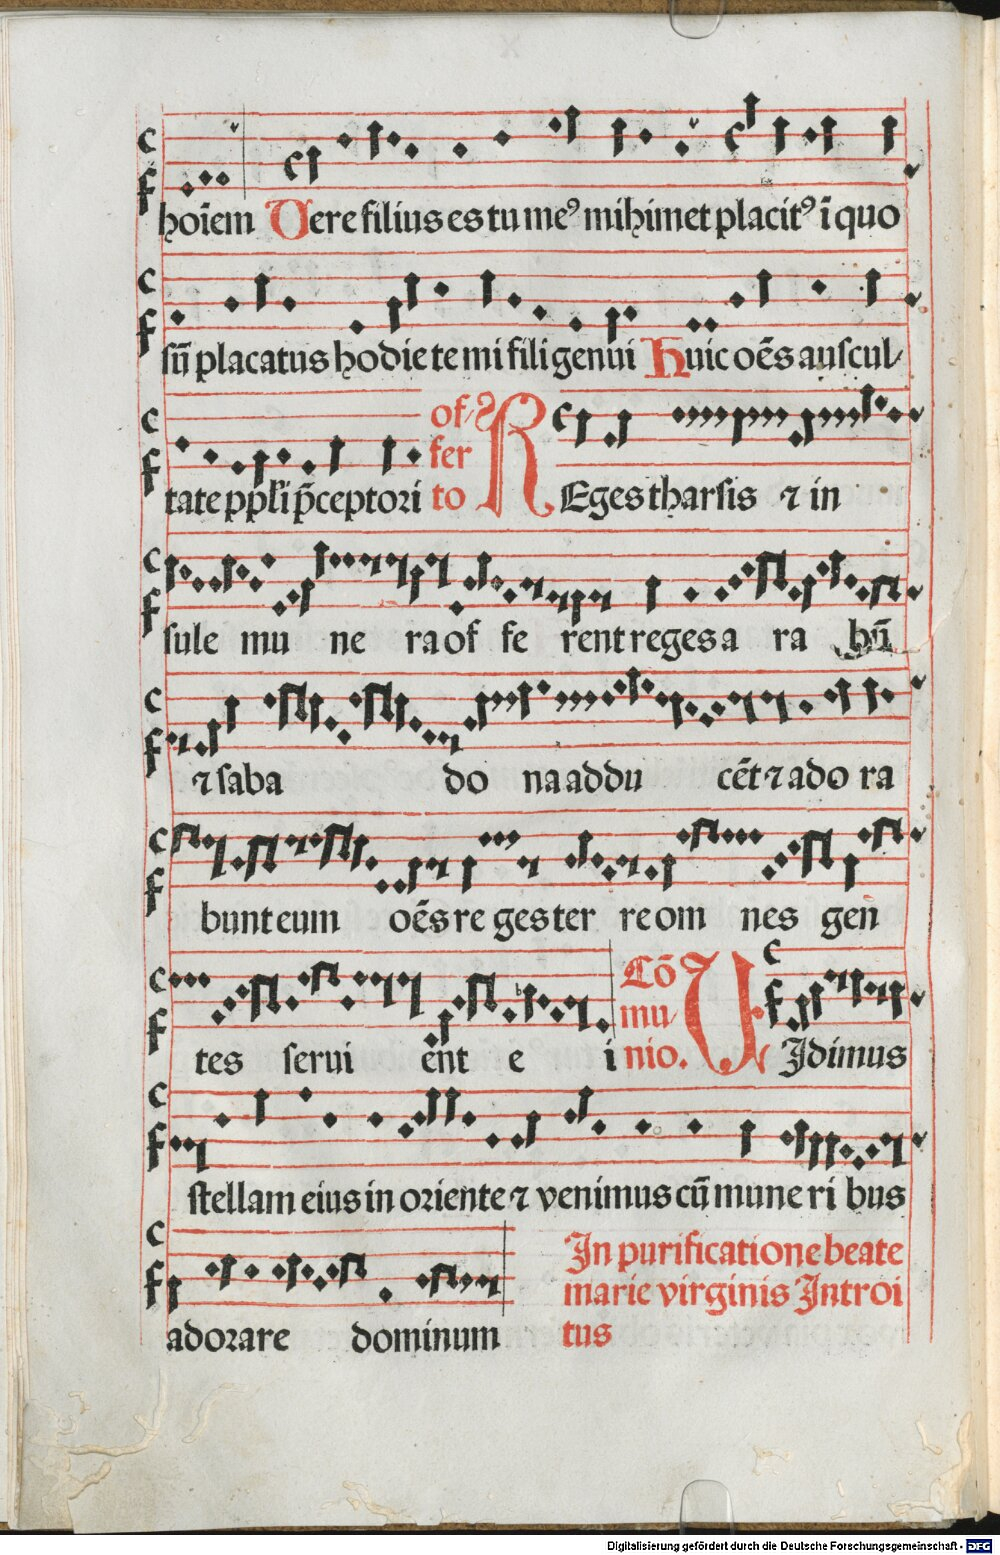 hoīem Vere filius es tu meꝰ mihimet placitꝰ ī quo
sū placatus hodie te mi fili genui Huic oēs auscul/
tate ppli p̄ceptori of/ferto REges tharsis ⁊ in
sule mu ne ra of fe rent reges a ra bū
⁊ saba do na addu cēt ⁊ ado ra
bunt eum oēs re ges ter re om nes gen
tes serui ent e i Cōmu/nio. VIdimus
stellam eius in oriente ⁊ venimus cū mune ri bus
adorare dominum
In purificatione beate
marie virginis Introi
tus
Digitalisierung gefördert durch die Deutsche Forschungsgemeinschaft - DFG